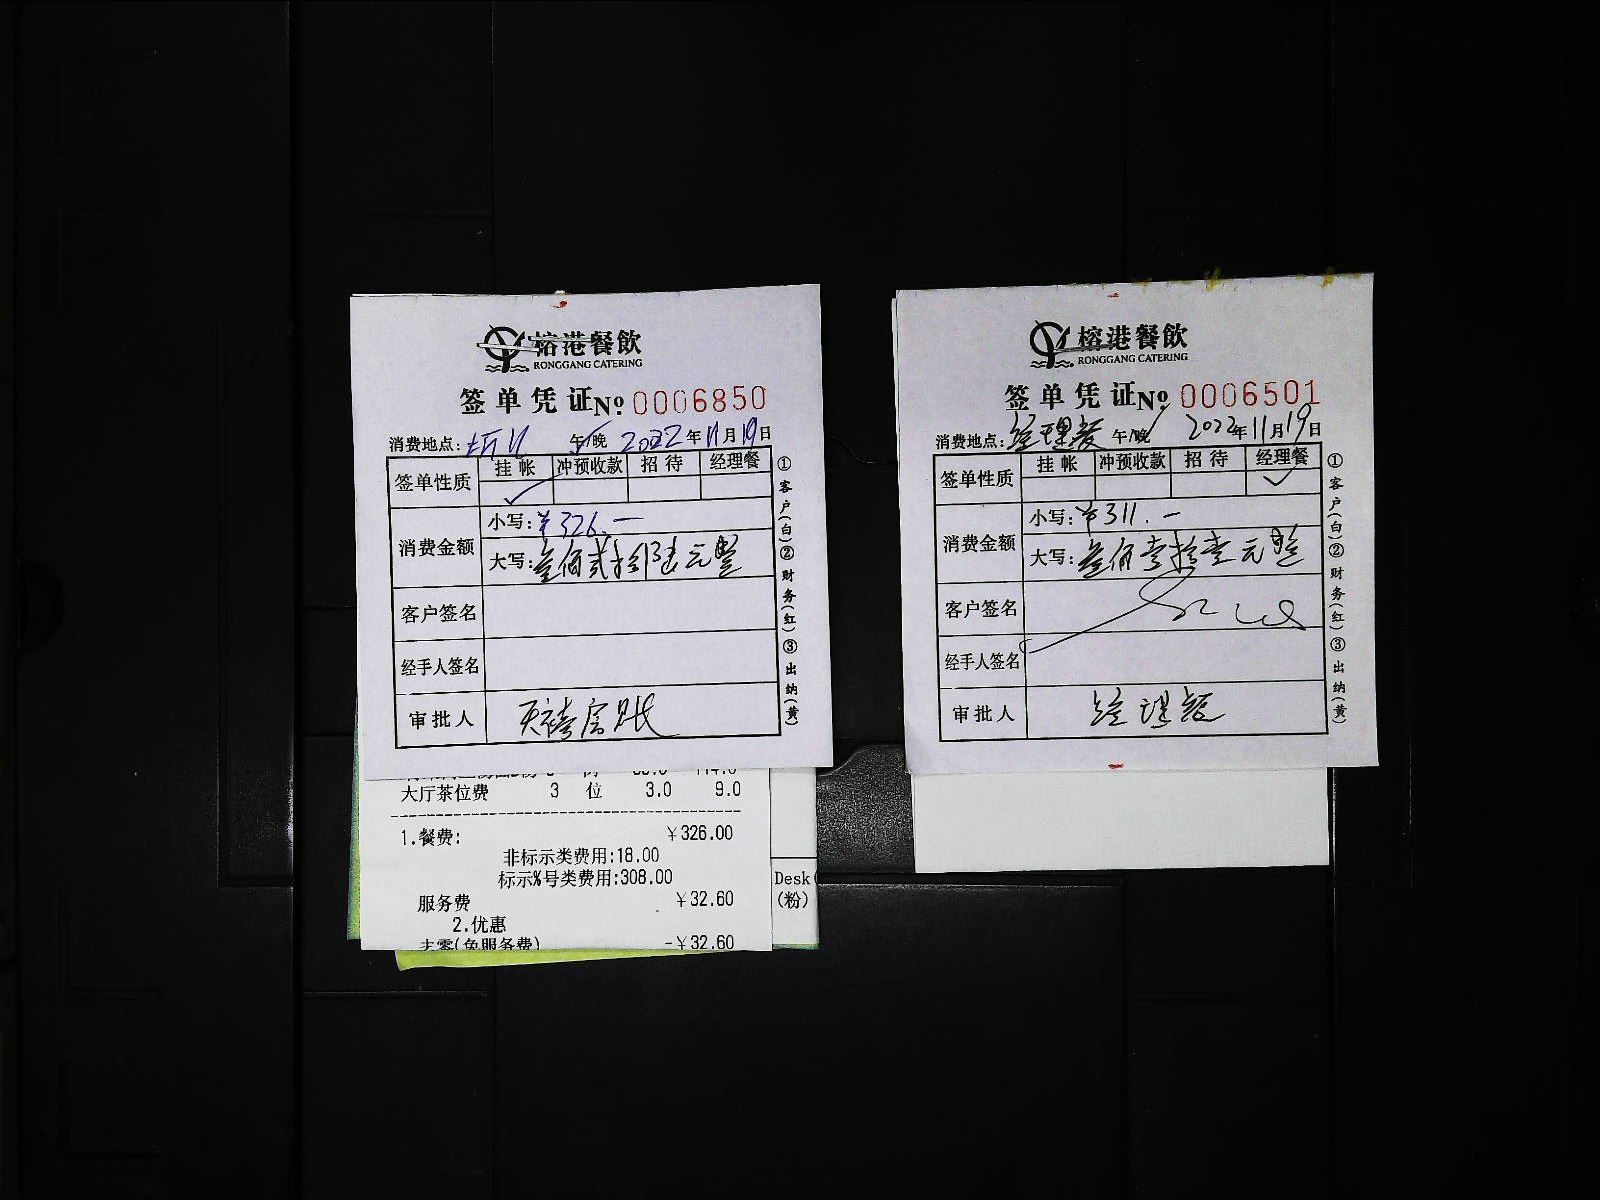 榕港餐飲
RONGGANG CATERING
签单凭证No 0006850
消费地点: 午/晚 2022年11月19日
签单性质 挂帐 冲预收款 招待 经理餐
✓
消费金额
小写:¥326.一
大写:叁佰贰拾陆元整
客户签名
经手人签名
审批人 天禧房账
①客户(白)②财务(红)③出纳(黄)
大厅茶位费 3 位 3.0 9.0
1.餐费: ¥326.00
非标示类费用:18.00
标示%号类费用:308.00
服务费 ¥32.60
2.优惠
去零(免服务费) -¥32.60
Desk
(粉)
榕港餐飲
RONGGANG CATERING
签单凭证No 0006501
消费地点:经理餐 午/晚 2022年11月19日
签单性质 挂帐 冲预收款 招待 经理餐
✓
消费金额
小写:¥311.一
大写:叁佰壹拾壹元整
客户签名
经手人签名
审批人 经理餐
①客户(白)②财务(红)③出纳(黄)